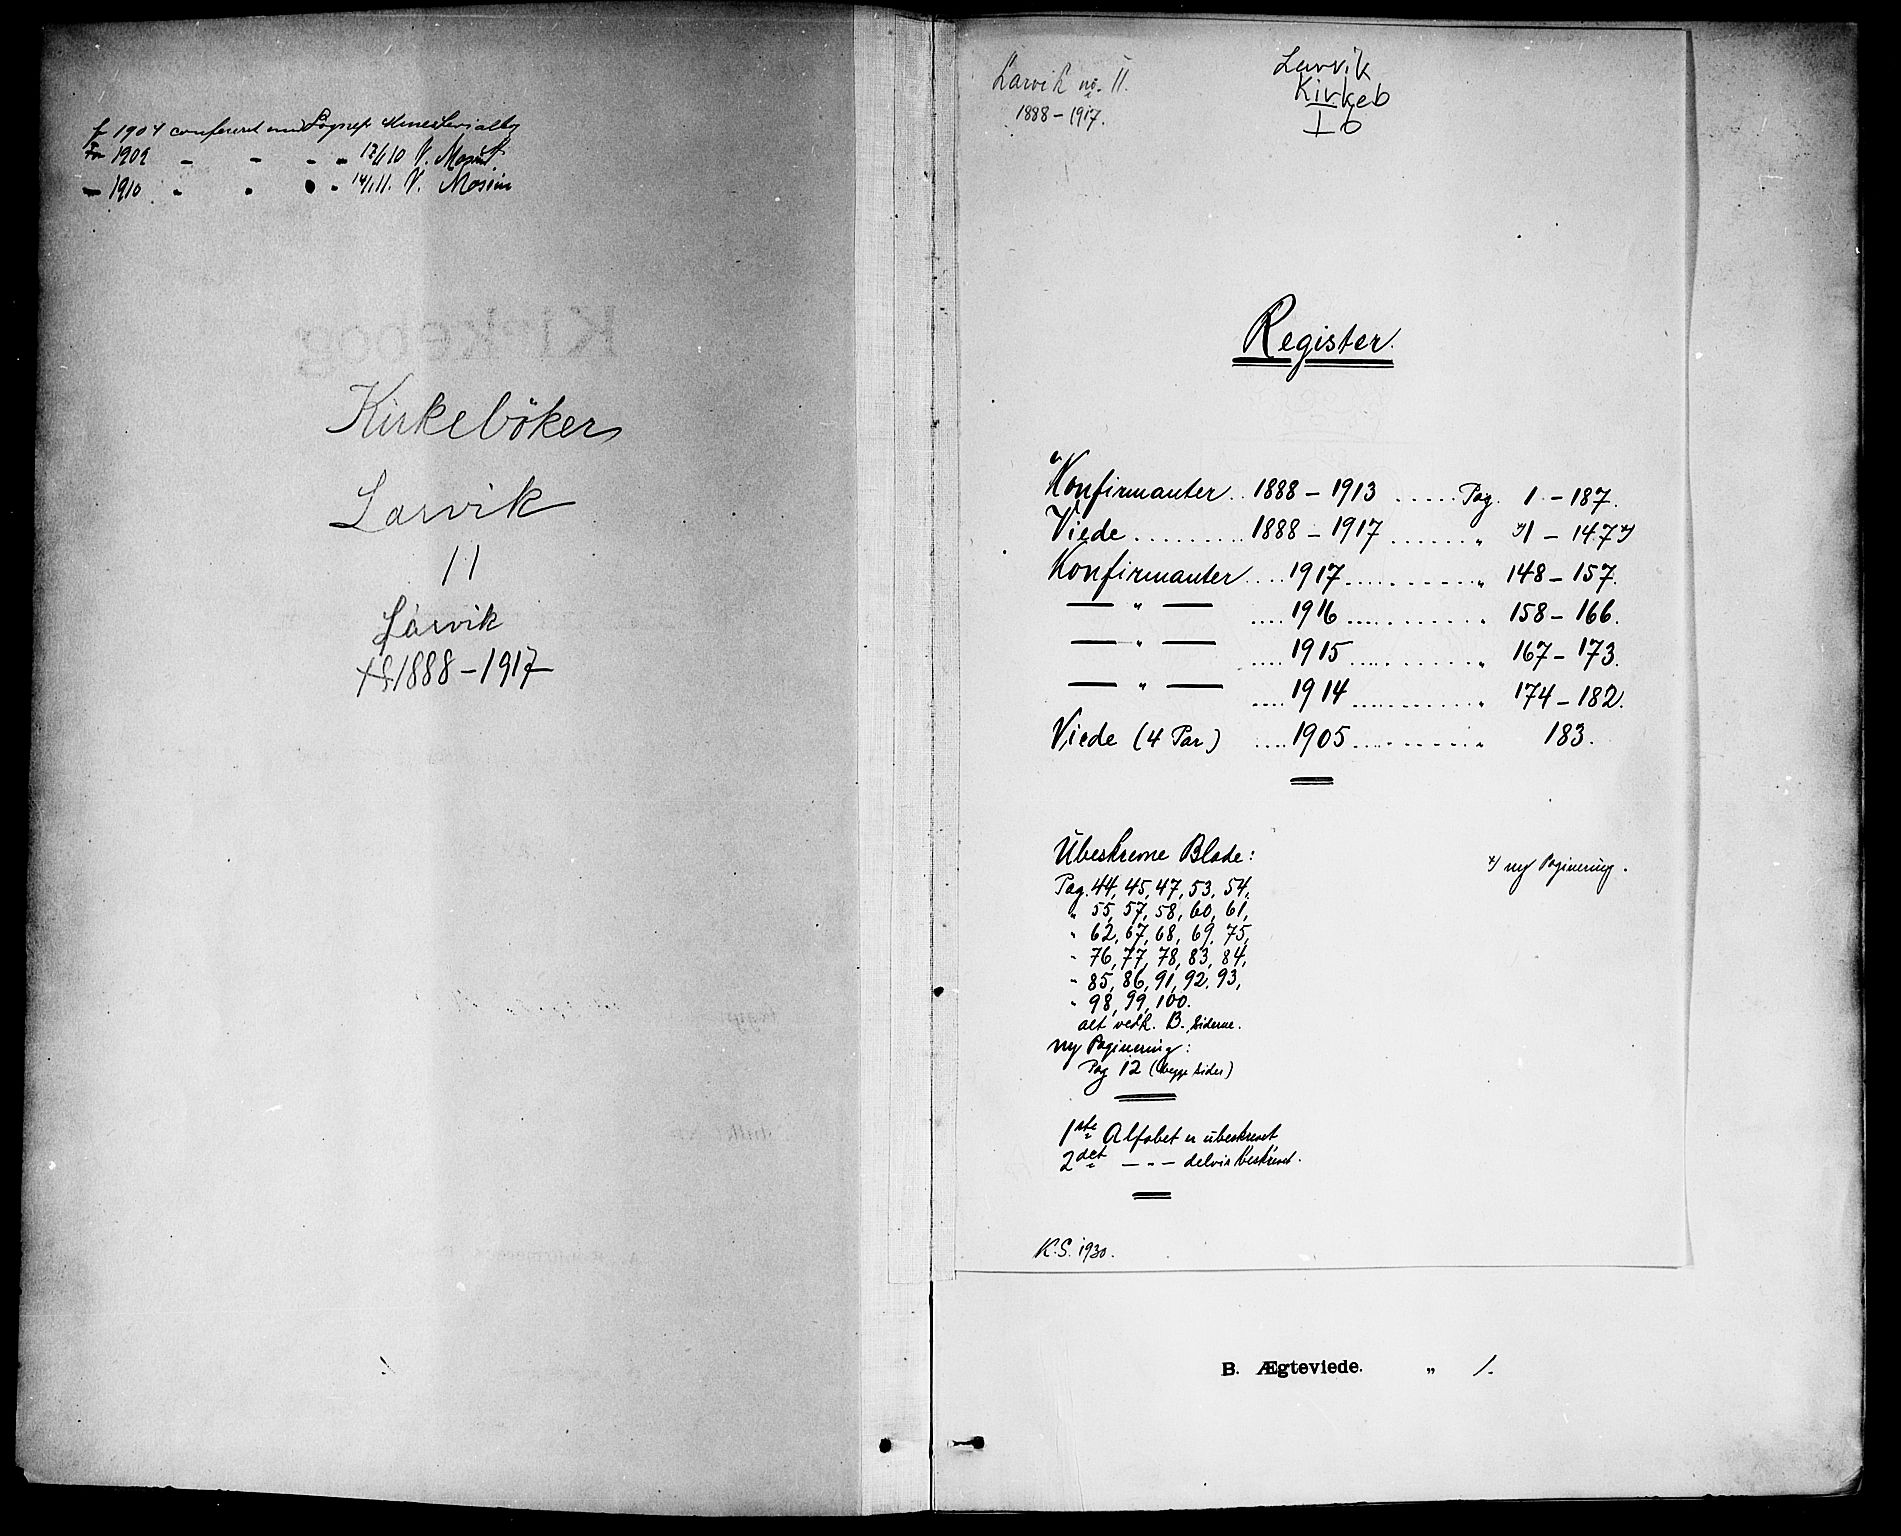 f 1904 conferert med Sognep. Ministerialbog
For 1909 - - - - 12/1 10 V. Mosin
— 1910 - - - - 14/1 11. V. Mosin
Kirkebøker
Larvik
11
Larvik
1888-1917
Larvik no. 11.
1888-1917.
Larvik
Kirkeb
I b
Register.
Konfirmanter.. 1888 - 1913 ...... Pag. 1 - 187.
Viede .......... 1888 - 1917 ....... „ x) 1 - 147 x)
Konfirmanter .... 1917 ........... „ 148 - 157.
— „ — .... 1916 ........... „ 158 - 166.
— „ — .... 1915 ........... „ 167 - 173.
— „ — .... 1914 ........... „ 174 - 182.
Viede (4 Par) .... 1905 ........... „ 183.
Ubeskrevne Blade:
x) ny Paginering.
Pag. 44, 45, 47, 53, 54,
„ 55, 57, 58, 60, 61,
„ 62, 67, 68, 69, 75,
„ 76, 77, 78, 83, 84,
„ 85, 86, 91, 92, 93,
„ 98, 99, 100.
alt vedk. B. Siderne.
ny Paginering:
Pag 12 (begge Sider)
1ste Alfabet er ubeskrevet
2det — „ — delvis beskrevet.
K.S. 1930.
B. Ægteviede. „ 1.